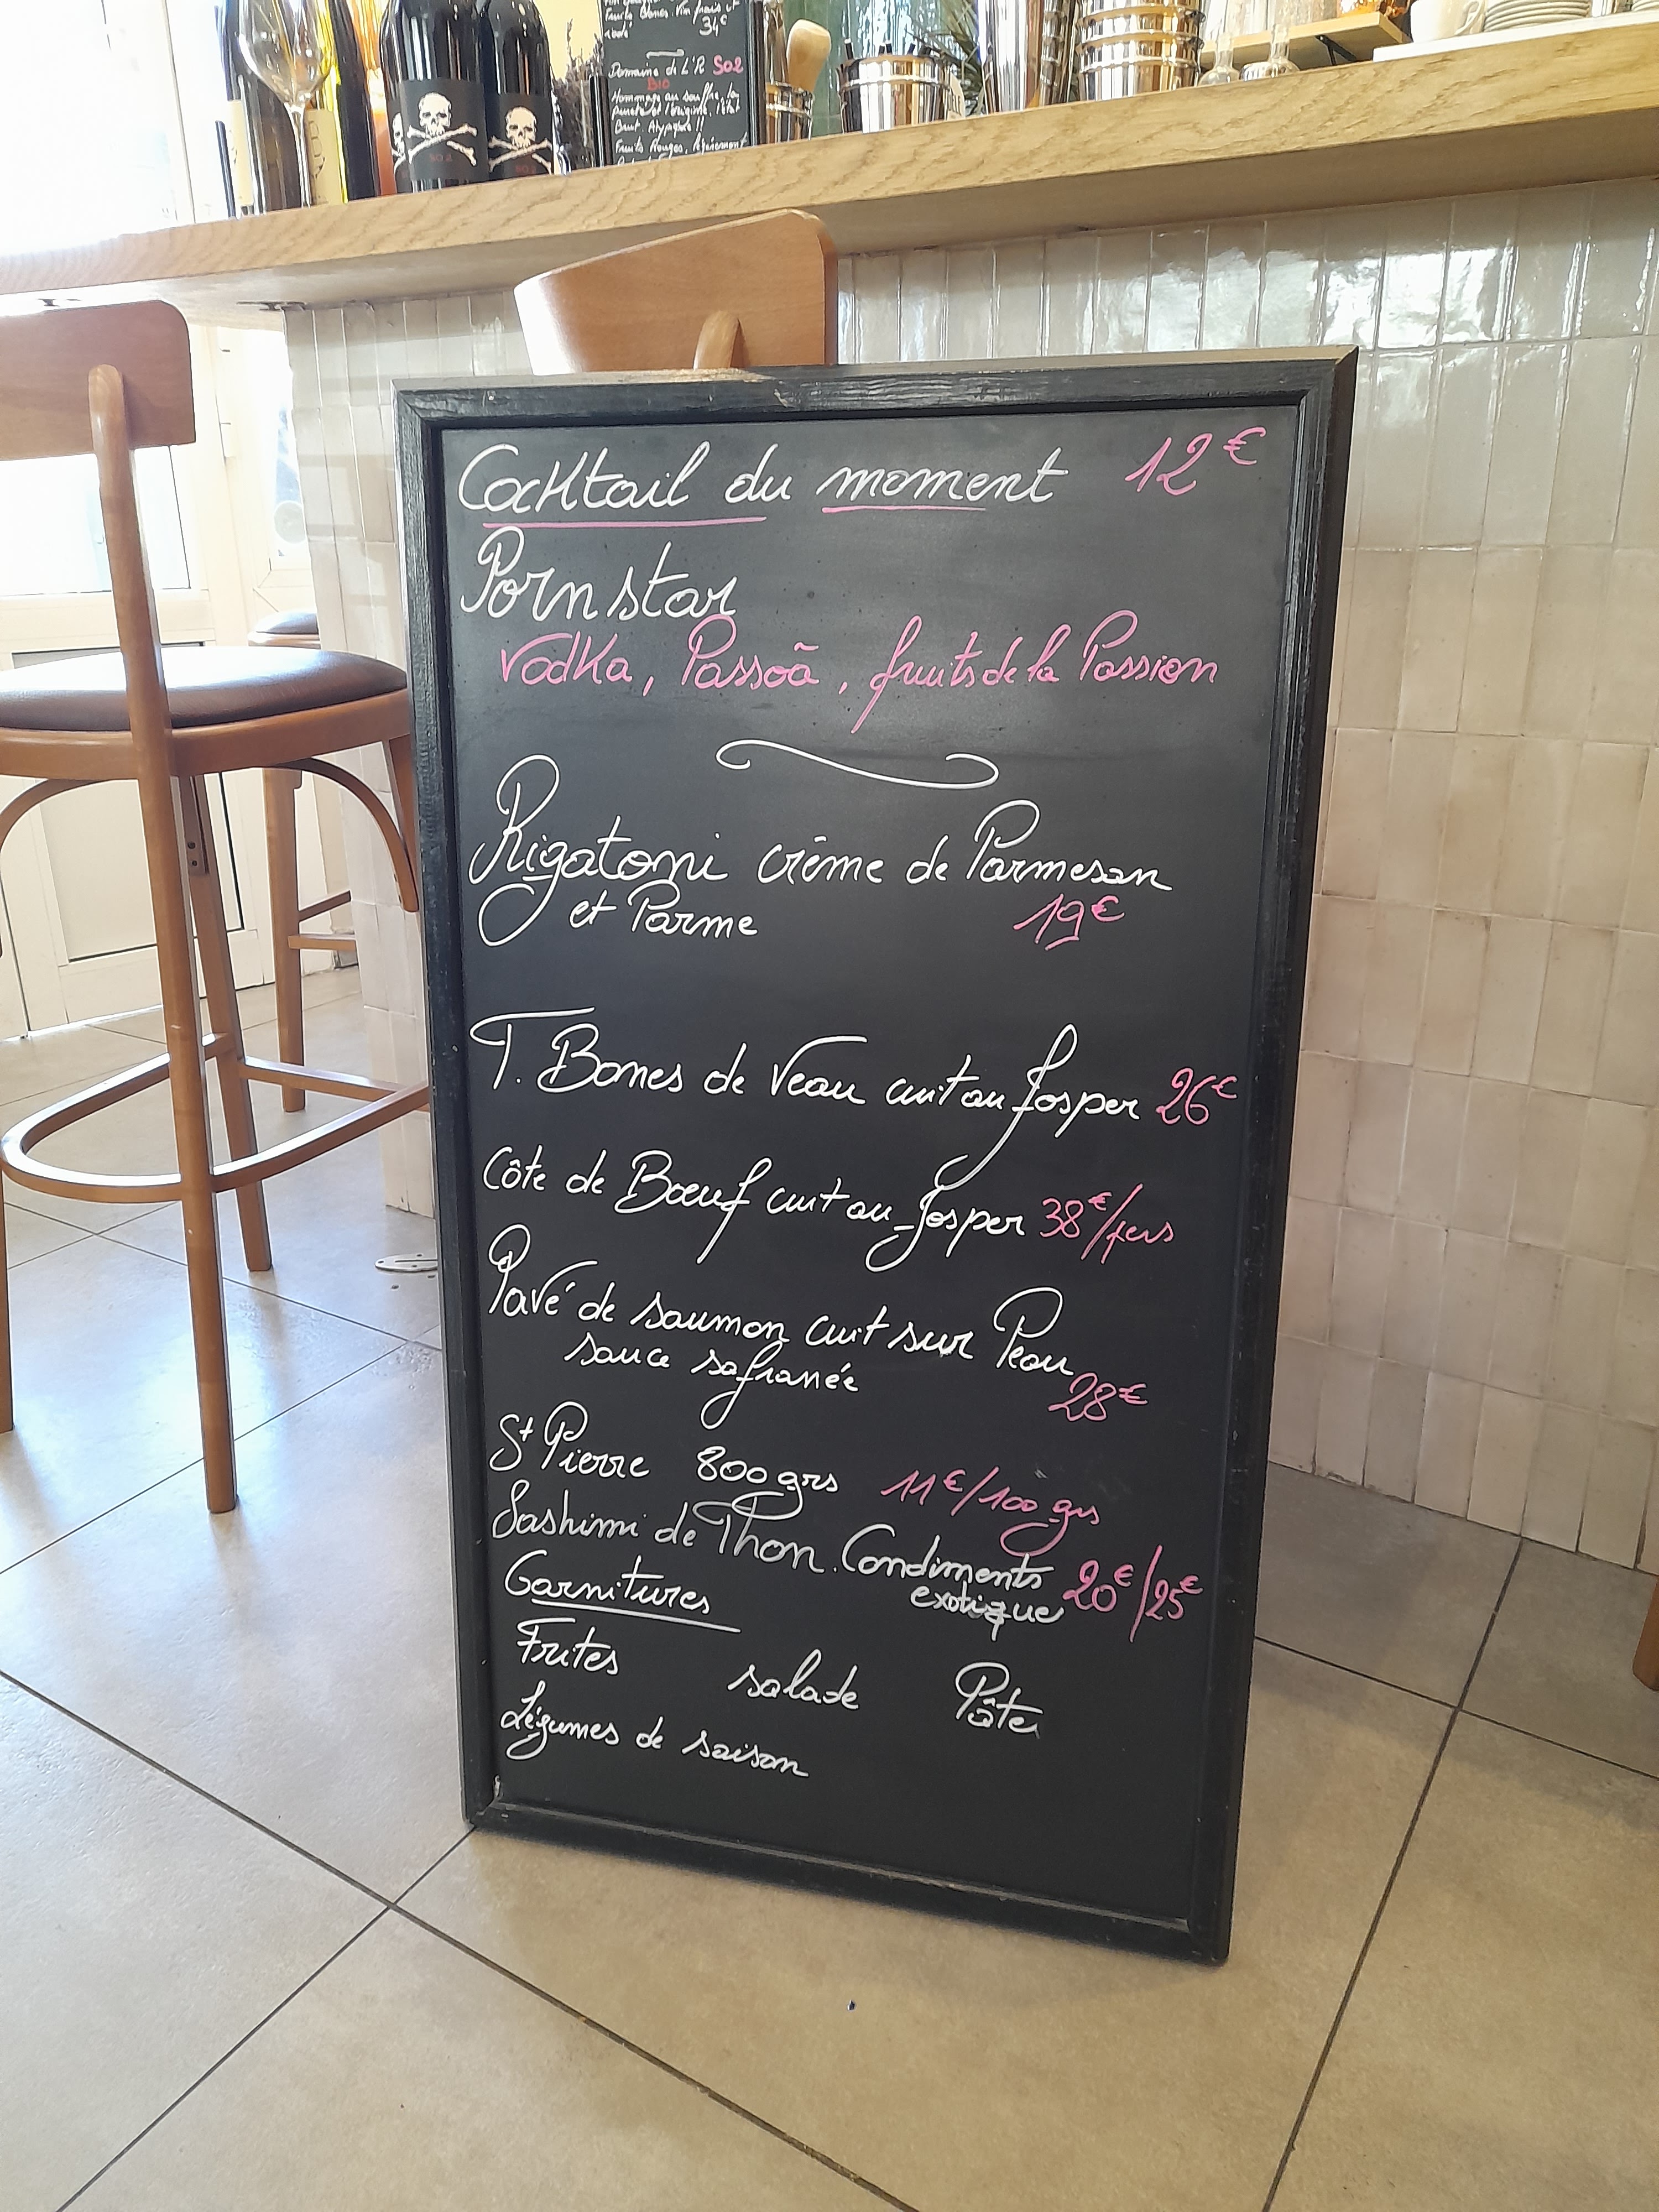 34€
Domaine de L'R SO2
BIO
Hommage au souffle, la
pureté et l'origine, l'état
Brut. Atypique !!
Fruits Rouges, légèrement
SO2
Cocktail du moment 12€
Pornstar
Vodka, Passoã, fruits de la Passion
Rigatoni crème de Parmesan
et Parme 19€
T. Bones de Veau cuit au Josper 26€
Côte de Bœuf cuit au Josper 38€/pers
Pavé de saumon cuit sur Peau
sauce safranée 28€
St Pierre 800grs 11€/100grs
Sashimi de Thon. Condiments 20€/25€
exotique
Garnitures
Frites salade Pâtes
Légumes de saison